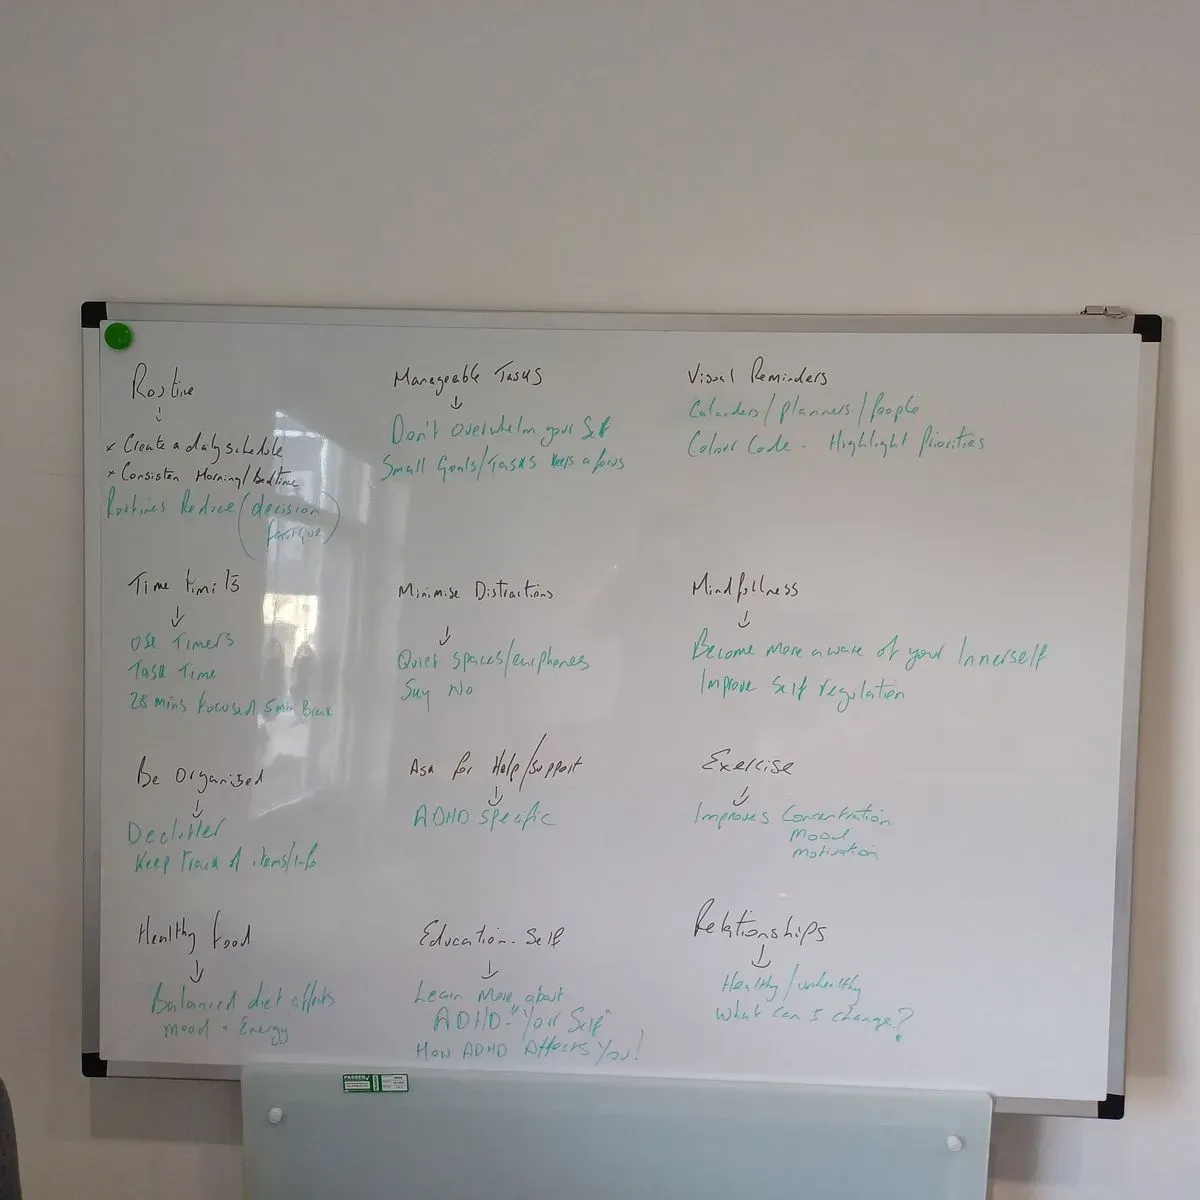 Routine
↓
× Create a daily schedule
× Consisten Morning/bedtime
Routines Reduce (decision
fatigue)
Manageable Tasks
↓
Don't overwhelm your Self
Small Goals/Tasks keeps a focus
Visual Reminders
Calanders/planners/people
Colour Code - Highlight Priorities
Time limits
↓
Use Timers
Task Time
25 mins focused, 5 min Break
Minimise Distractions
↓
Quiet spaces/earphones
Say No
Mindfullness
↓
Become more aware of your Innerself
Improve Self regulation
Be Organised
↓
Declutter
Keep track of items/info
Ask for Help/support
↓
ADHD specific
Exercise
↓
Improves Concentration
Mood
motivation
Healthy food
↓
Balanced diet affects
Mood + Energy
Education - Self
↓
Learn more about
ADHD - "Your Self"
How ADHD Affects You!
Relationships
↓
Healthy/unhealthy
What can I change?
PASSED